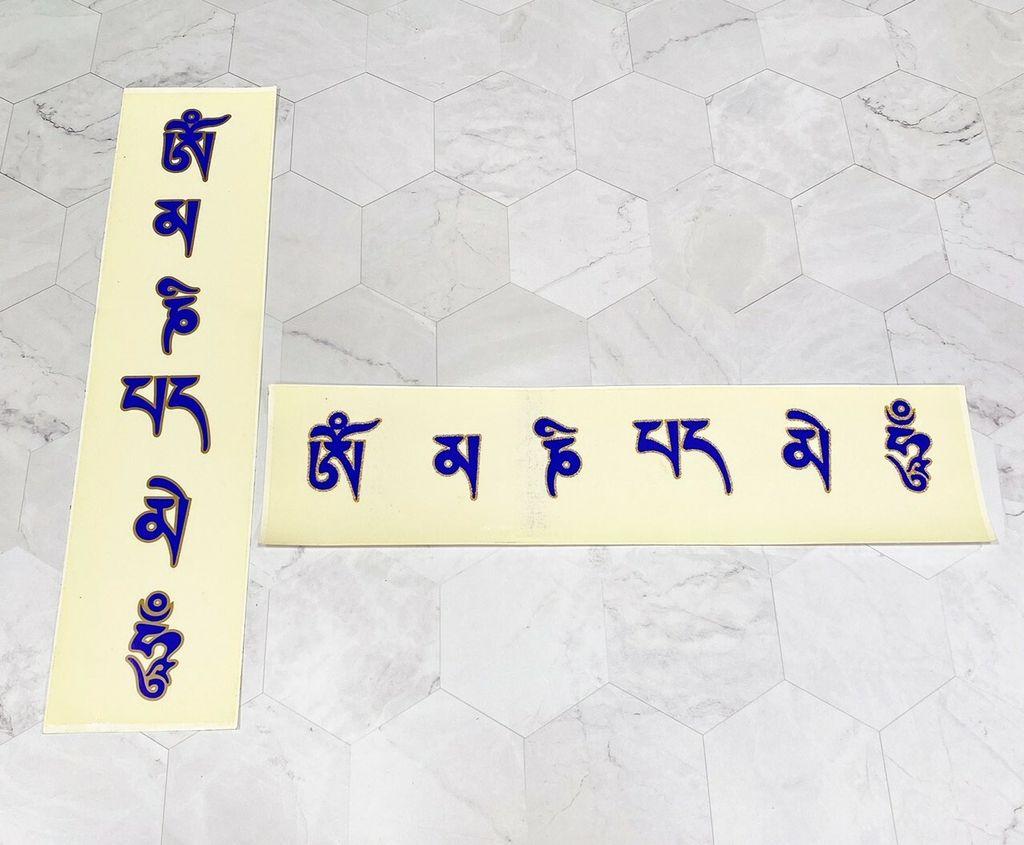 ༀ
མ
ཎི
པད
མེ
ཧཱུྃ
ༀ མ ཎི པད མེ ཧཱུྃ